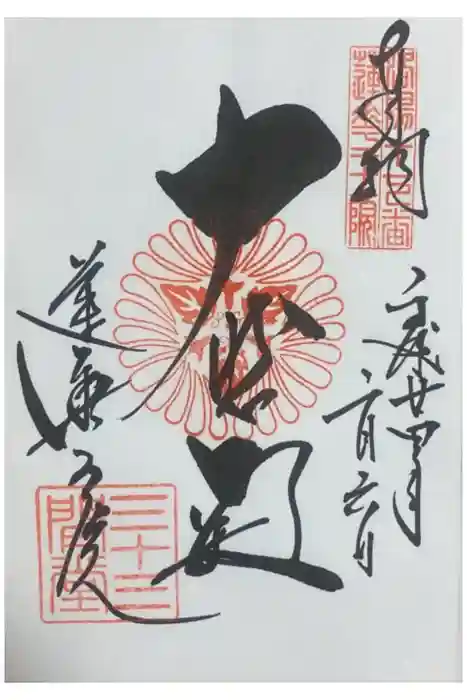 奉拝
洛陽十七番
蓮華王院
平成廿四年
大悲殿
蓮華王院
三十三
間堂